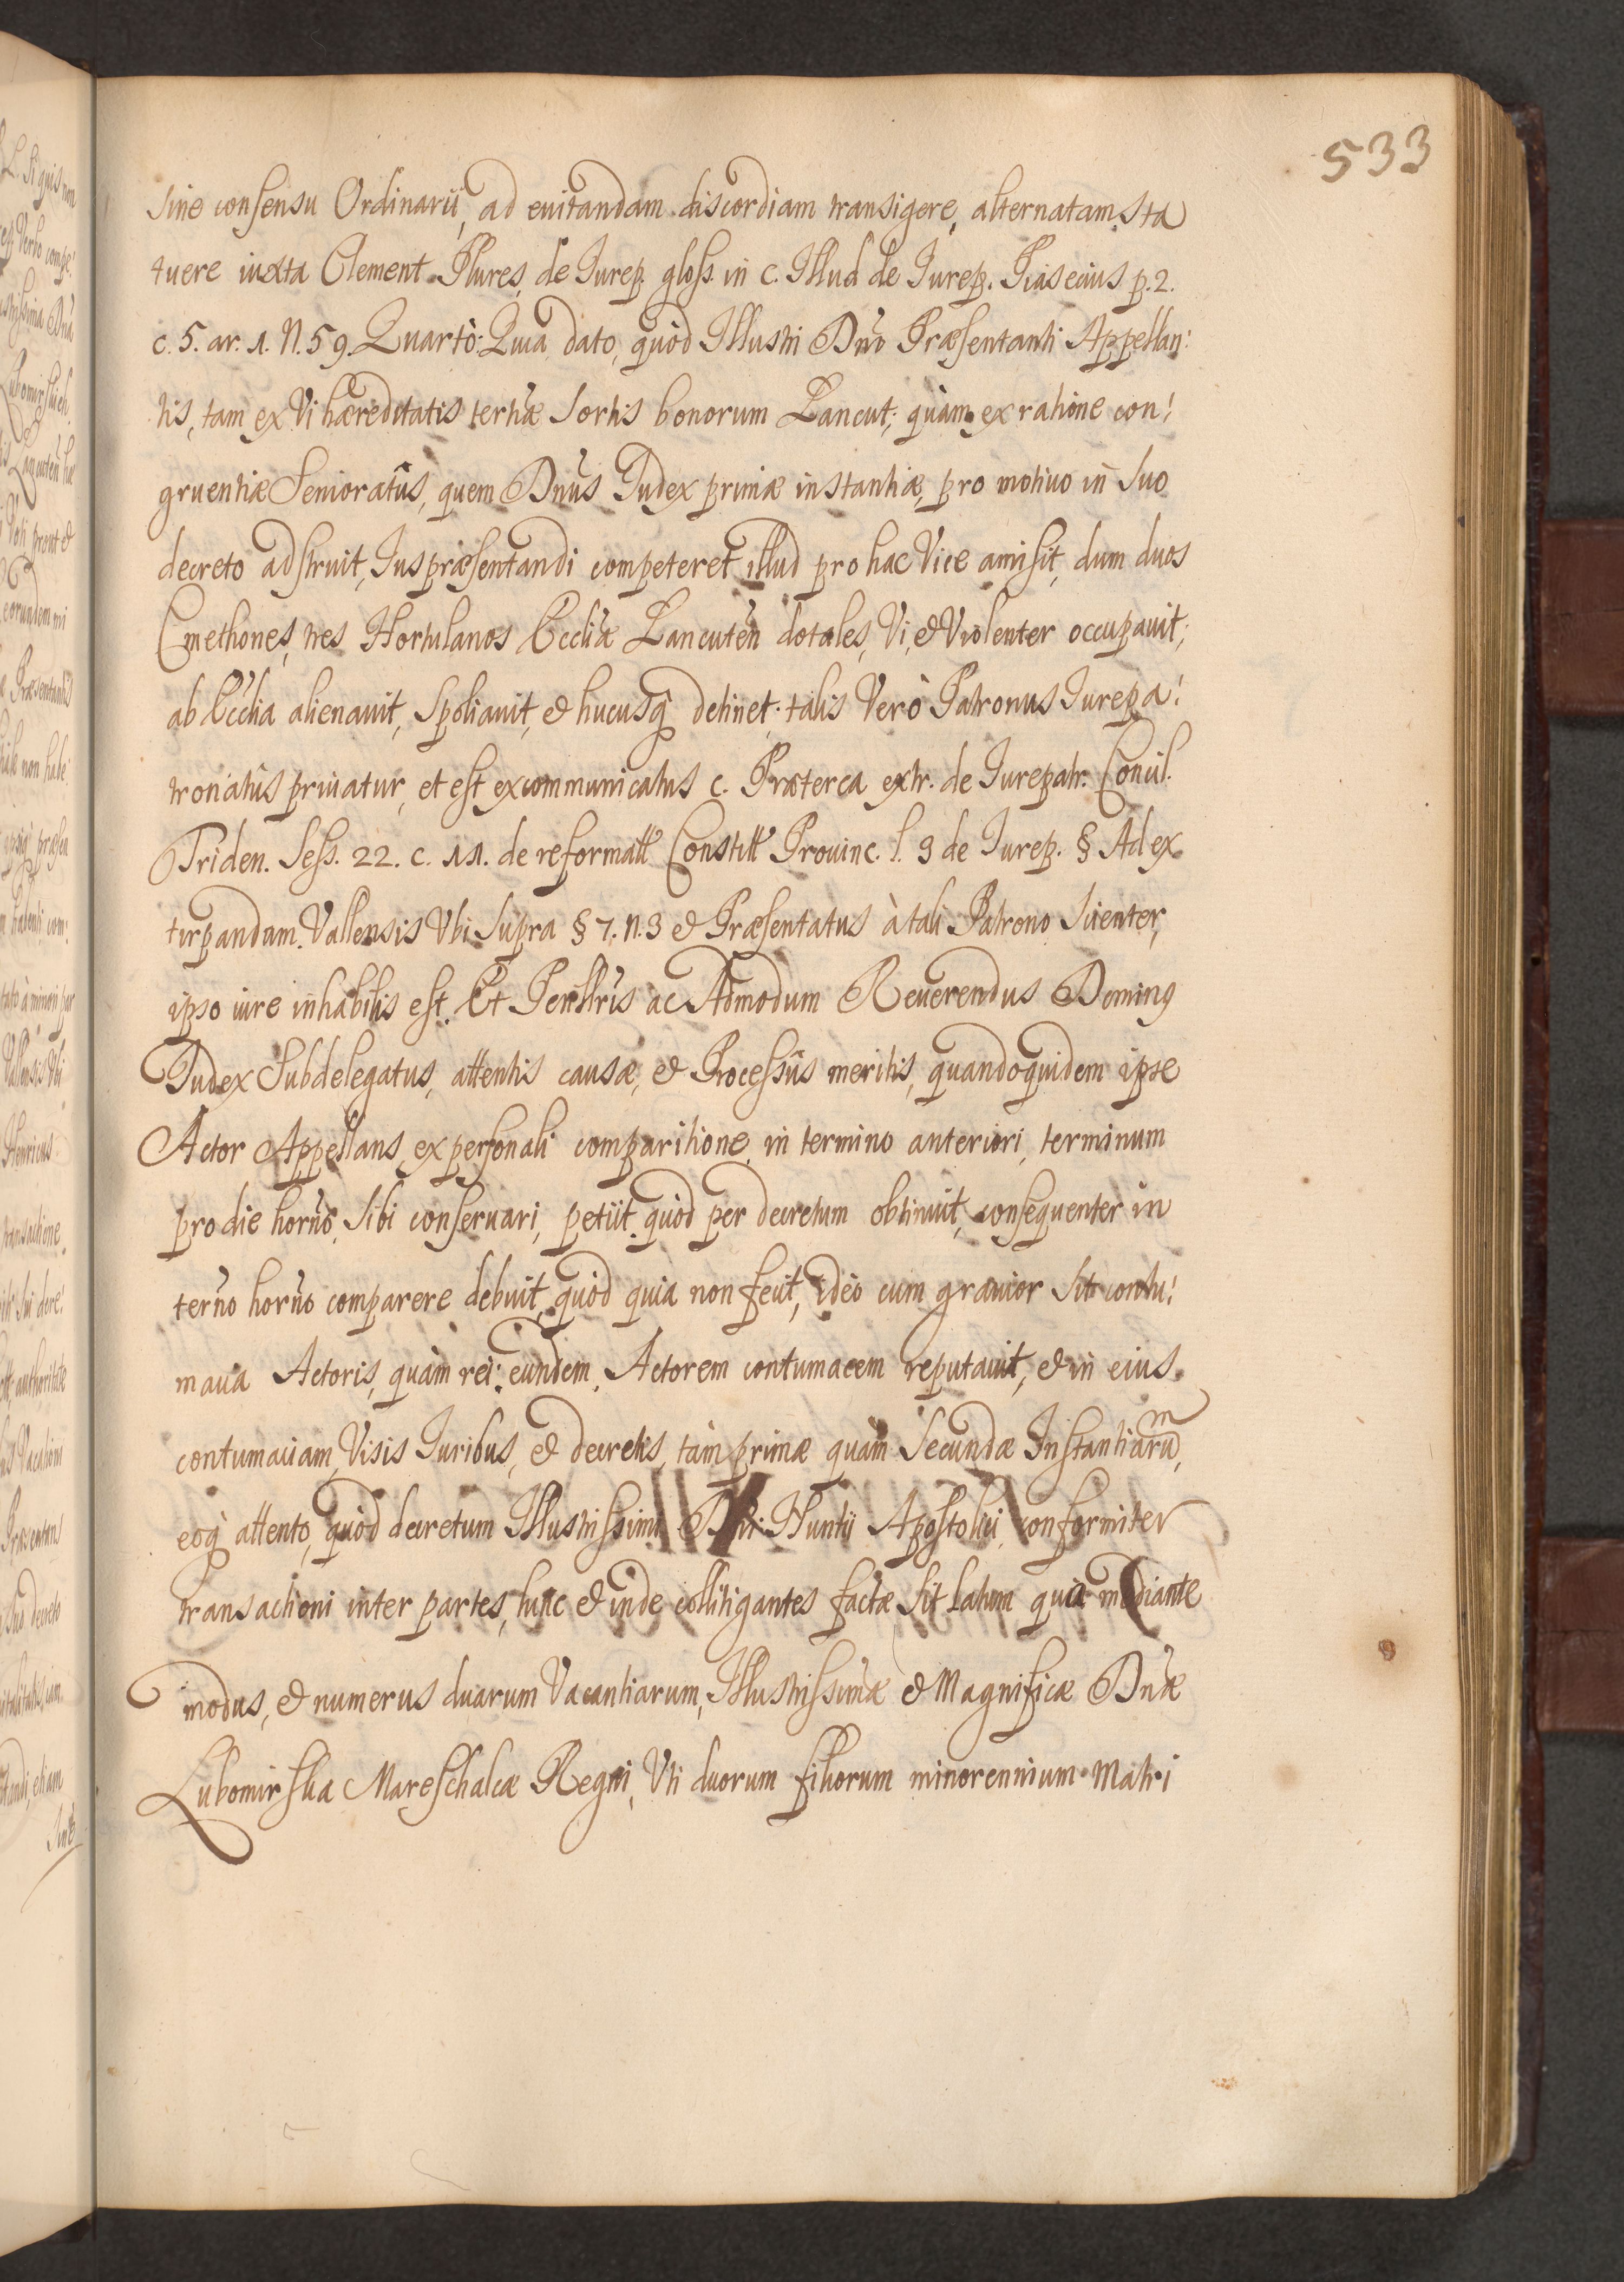 533
sine consensu Ordinarii, ad euitandam discordiam transigere, alternatam sta
tuere iuxta Clement. Plures, de Jurep. gloss. in c. Illud de Jurep. Piasecius p. 2.
c. 5. ar. 1. N. 59. Quartò: Quia dato, quòd Illustri Dno Præsentanti Appellan:
tis, tam ex Vi hæreditatis tertiæ Sortis bonorum Lancut; quàm ex ratione con:
gruentiæ Senioratûs, quem Dnus Judex primæ instantiæ, pro motiuo in suo
decreto adstruit, Jus præsentandi competeret, illud pro hac Vice amisit, dum duos
Cmethones, tres Hortulanos Eccliæ Lancuten dotales, Vi, & Violenter occupauit;
ab Ecclia alienauit, Spoliauit, & hucusq detinet. talis Verò Patronus Jurepa:
tronatûs priuatur, et est excommunicatus c. Præterea extr. de Jurepatr. Concil.
Triden. Sess. 22. c. 11. de reformatt Constitt Prouinc. l. 3 de Jurep. § Ad ex
tirpandam. Vallensis Vbi Supra § 7. N. 3 & Præsentatus à tali Patrono Scienter,
ipso iure inhabilis est. Et Perillris ac Admodum Reuerendus Dominus
Judex Subdelegatus, attentis causæ, & Processûs meritis, quandoquidem ipse
Actor Appellans, ex personali comparitione, in termino anteriori, terminum
pro die horno, Sibi conseruari, petiit. quòd per decretum obtinuit, consequenter in
terno horno comparere debuit, quòd quia non fecit, ideò cum grauior Sit contu:
macia Actoris, quàm rei: eundem, Actorem contumacem reputauit, & in eius
contumaciam, Visis Juribus, & decretis, tàm primæ quàm Secundæ Instantiarum,
eoq attento, quòd decretum Illustrissimi Dni: Nuntii Apostolici, conformiter
transactioni inter partes, hinc & inde collitigantes factæ Sit latum quia mediante
modus, & numerus duarum Vacantiarum, Illustrissimæ & Magnificæ Dnæ
Lubomirska Mareschalcæ Regni, Vti duorum filiorum minorennium Matri